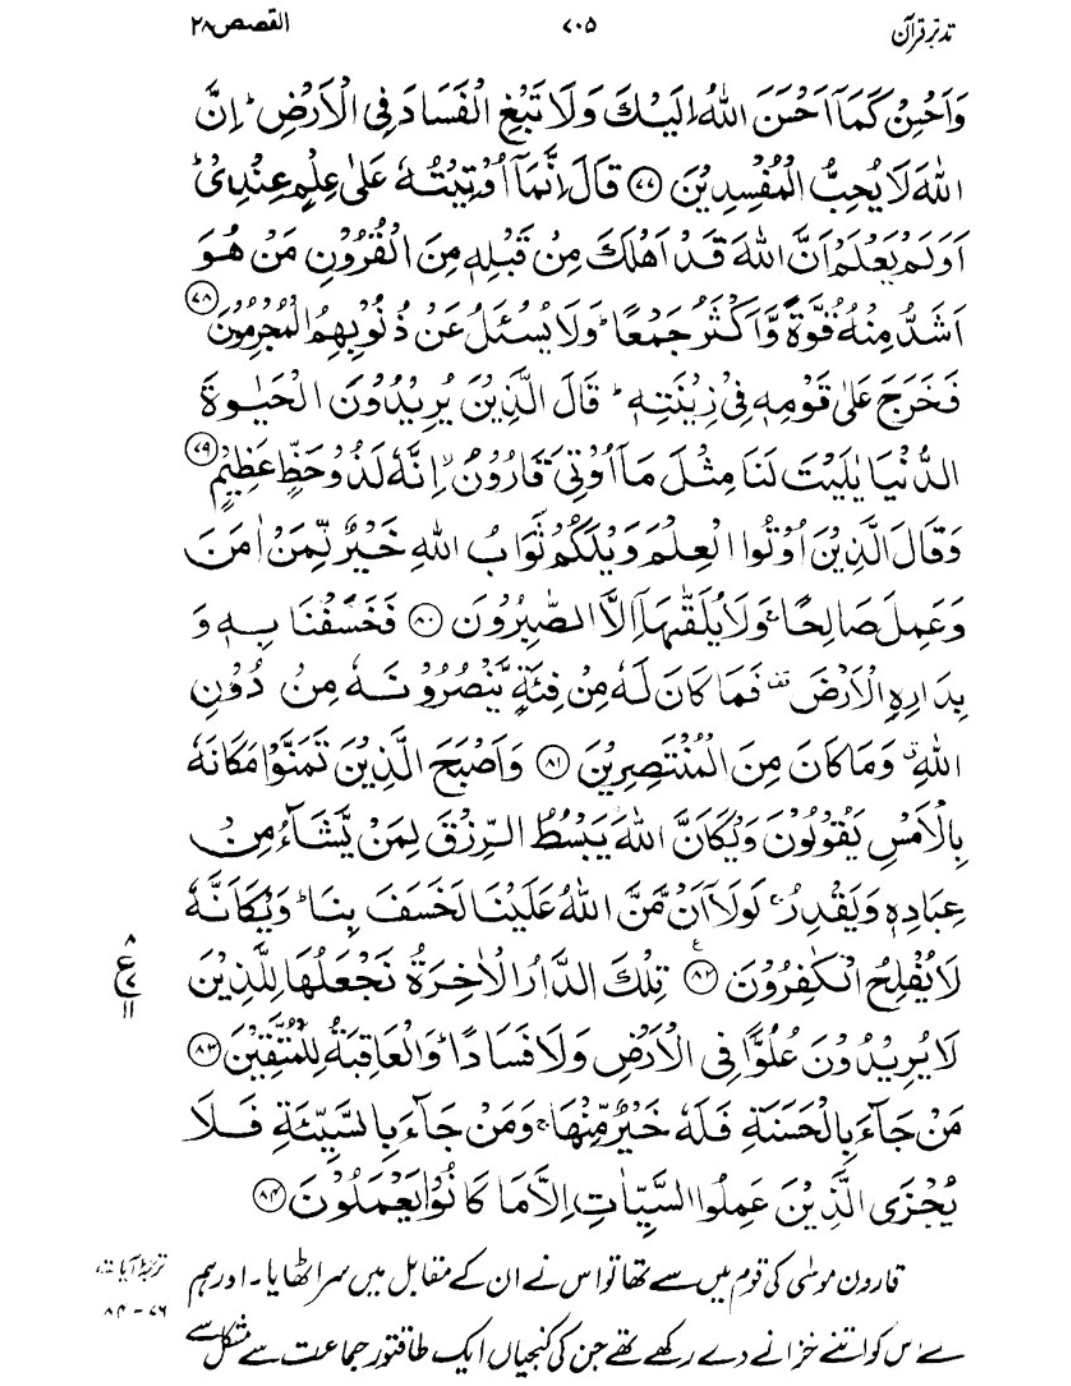 تدبرِ قرآن ۷۰۵ القصص ۲۸
وَاَحْسِنْ كَمَآ اَحْسَنَ اللّٰهُ اِلَيْكَ وَلَا تَبْغِ الْفَسَادَ فِى الْاَرْضِ ؕ اِنَّ
اللّٰهَ لَا يُحِبُّ الْمُفْسِدِيْنَ ﴿۷۷﴾ قَالَ اِنَّمَآ اُوْتِيْتُهٗ عَلٰى عِلْمٍ عِنْدِىْ ؕ
اَوَلَمْ يَعْلَمْ اَنَّ اللّٰهَ قَدْ اَهْلَكَ مِنْ قَبْلِهٖ مِنَ الْقُرُوْنِ مَنْ هُوَ
اَشَدُّ مِنْهُ قُوَّةً وَّاَكْثَرُ جَمْعًا ؕ وَلَا يُسْئَلُ عَنْ ذُنُوْبِهِمُ الْمُجْرِمُوْنَ ﴿۷۸﴾
فَخَرَجَ عَلٰى قَوْمِهٖ فِىْ زِيْنَتِهٖ ؕ قَالَ الَّذِيْنَ يُرِيْدُوْنَ الْحَيٰوةَ
الدُّنْيَا يٰلَيْتَ لَنَا مِثْلَ مَآ اُوْتِىَ قَارُوْنُ ۙ اِنَّهٗ لَذُوْ حَظٍّ عَظِيْمٍ ﴿۷۹﴾
وَقَالَ الَّذِيْنَ اُوْتُوا الْعِلْمَ وَيْلَكُمْ ثَوَابُ اللّٰهِ خَيْرٌ لِّمَنْ اٰمَنَ
وَعَمِلَ صَالِحًا ۚ وَلَا يُلَقّٰىهَآ اِلَّا الصّٰبِرُوْنَ ﴿۸۰﴾ فَخَسَفْنَا بِهٖ وَ
بِدَارِهِ الْاَرْضَ ۫ فَمَا كَانَ لَهٗ مِنْ فِئَةٍ يَّنْصُرُوْنَهٗ مِنْ دُوْنِ
اللّٰهِ ۫ وَمَا كَانَ مِنَ الْمُنْتَصِرِيْنَ ﴿۸۱﴾ وَاَصْبَحَ الَّذِيْنَ تَمَنَّوْا مَكَانَهٗ
بِالْاَمْسِ يَقُوْلُوْنَ وَيْكَاَنَّ اللّٰهَ يَبْسُطُ الرِّزْقَ لِمَنْ يَّشَآءُ مِنْ
عِبَادِهٖ وَيَقْدِرُ ۚ لَوْلَاۤ اَنْ مَّنَّ اللّٰهُ عَلَيْنَا لَخَسَفَ بِنَا ؕ وَيْكَاَنَّهٗ
لَا يُفْلِحُ الْكٰفِرُوْنَ ﴿۸۲﴾ تِلْكَ الدَّارُ الْاٰخِرَةُ نَجْعَلُهَا لِلَّذِيْنَ
۸ ع ۱۱
لَا يُرِيْدُوْنَ عُلُوًّا فِى الْاَرْضِ وَلَا فَسَادًا ؕ وَالْعَاقِبَةُ لِلْمُتَّقِيْنَ ﴿۸۳﴾
مَنْ جَآءَ بِالْحَسَنَةِ فَلَهٗ خَيْرٌ مِّنْهَا ۚ وَمَنْ جَآءَ بِالسَّيِّئَةِ فَلَا
يُجْزَى الَّذِيْنَ عَمِلُوا السَّيِّاٰتِ اِلَّا مَا كَانُوْا يَعْمَلُوْنَ ﴿۸۴﴾
ترجمۂ آیات
۷۶ - ۸۴
قارون موسٰی کی قوم میں سے تھا تو اس نے ان کے مقابل میں سر اٹھایا۔ اور ہم
نے اس کو اتنے خزانے دے رکھے تھے جن کی کنجیاں ایک طاقتور جماعت سے مشکل سے